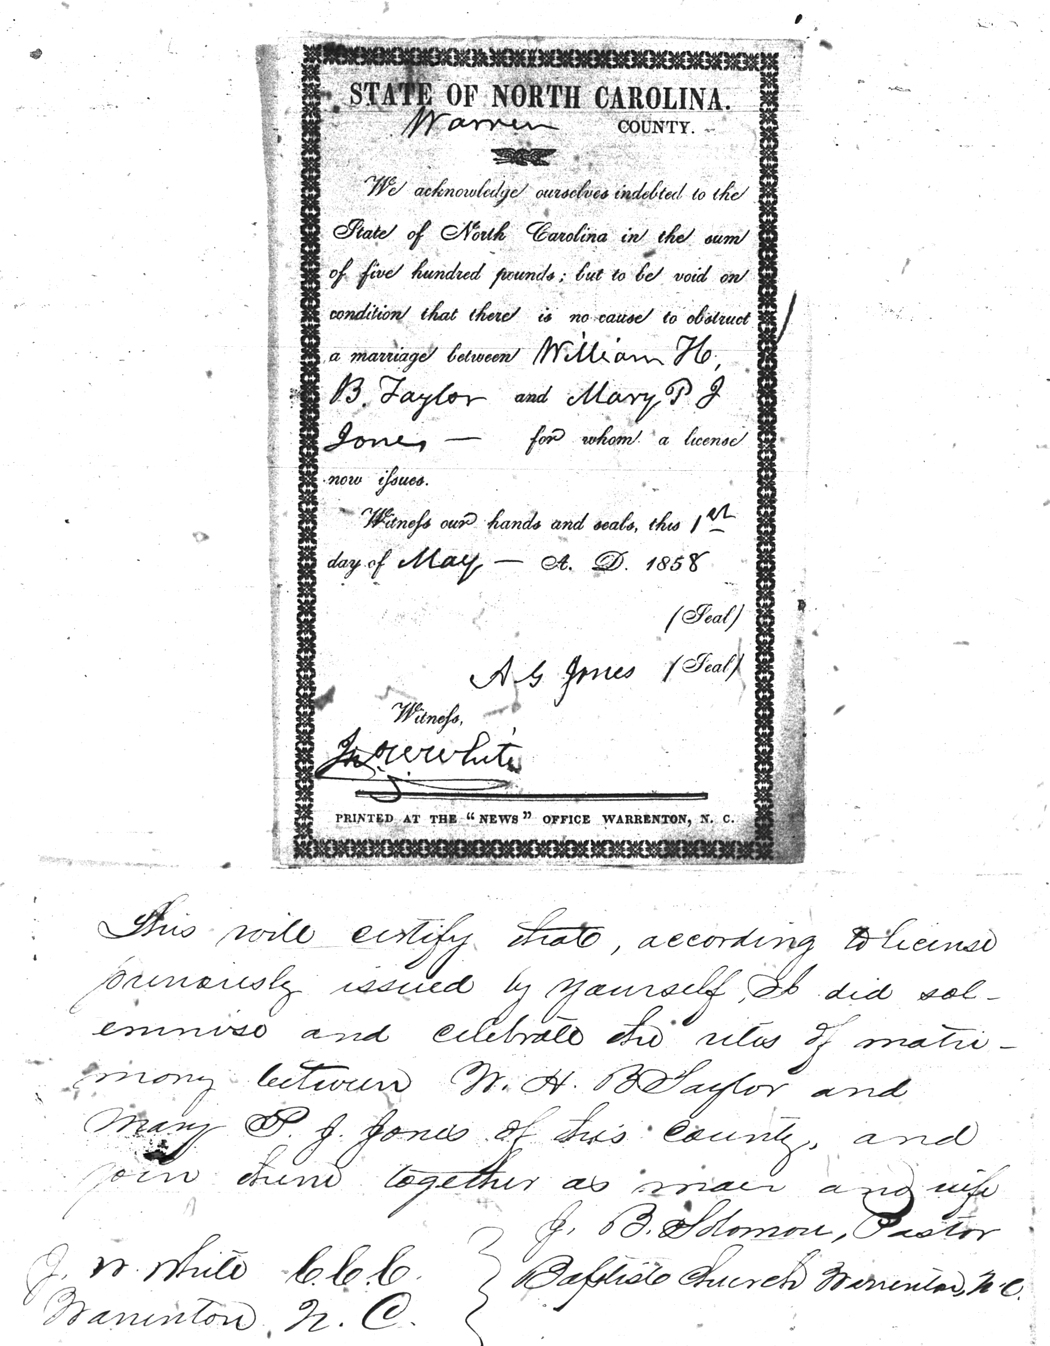 STATE OF NORTH CAROLINA.
Warren COUNTY.
We acknowledge ourselves indebted to the
State of North Carolina in the sum
of five hundred pounds; but to be void on
condition that there is no cause to obstruct
a marriage between William H.
B. Taylor and Mary P. J
Jones — for whom a license
now issues.
Witness our hands and seals, this 1st
day of May — A. D. 1858
(Seal)
A G Jones (Seal)
Witness,
Jno W White
PRINTED AT THE "NEWS" OFFICE WARRENTON, N. C.
This will certify that, according to license
previously issued by yourself, I did sol-
emnise and celebrate the rites of matri-
mony between W. H. B Taylor and
Mary P. J. Jones of this county, and
join them together as man and wife
J. B. Solomon, Pastor
Baptist Church Warrenton, N. C.
J. W. White C.C.C.
Warrenton, N. C.